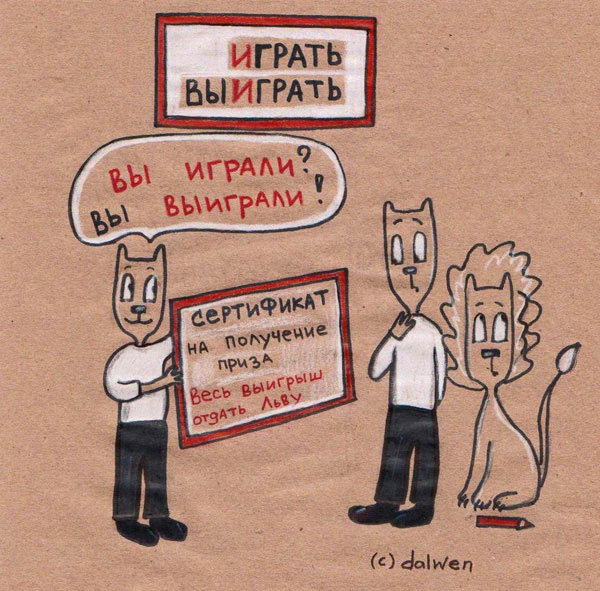 ИГРАТЬ
ВЫИГРАТЬ
ВЫ ИГРАЛИ?
ВЫ ВЫИГРАЛИ!
СЕРТИФИКАТ
НА ПОЛУЧЕНИЕ
ПРИЗА
ВЕСЬ ВЫИГРЫШ
ОТДАТЬ ЛЬВУ
(c) dalwen